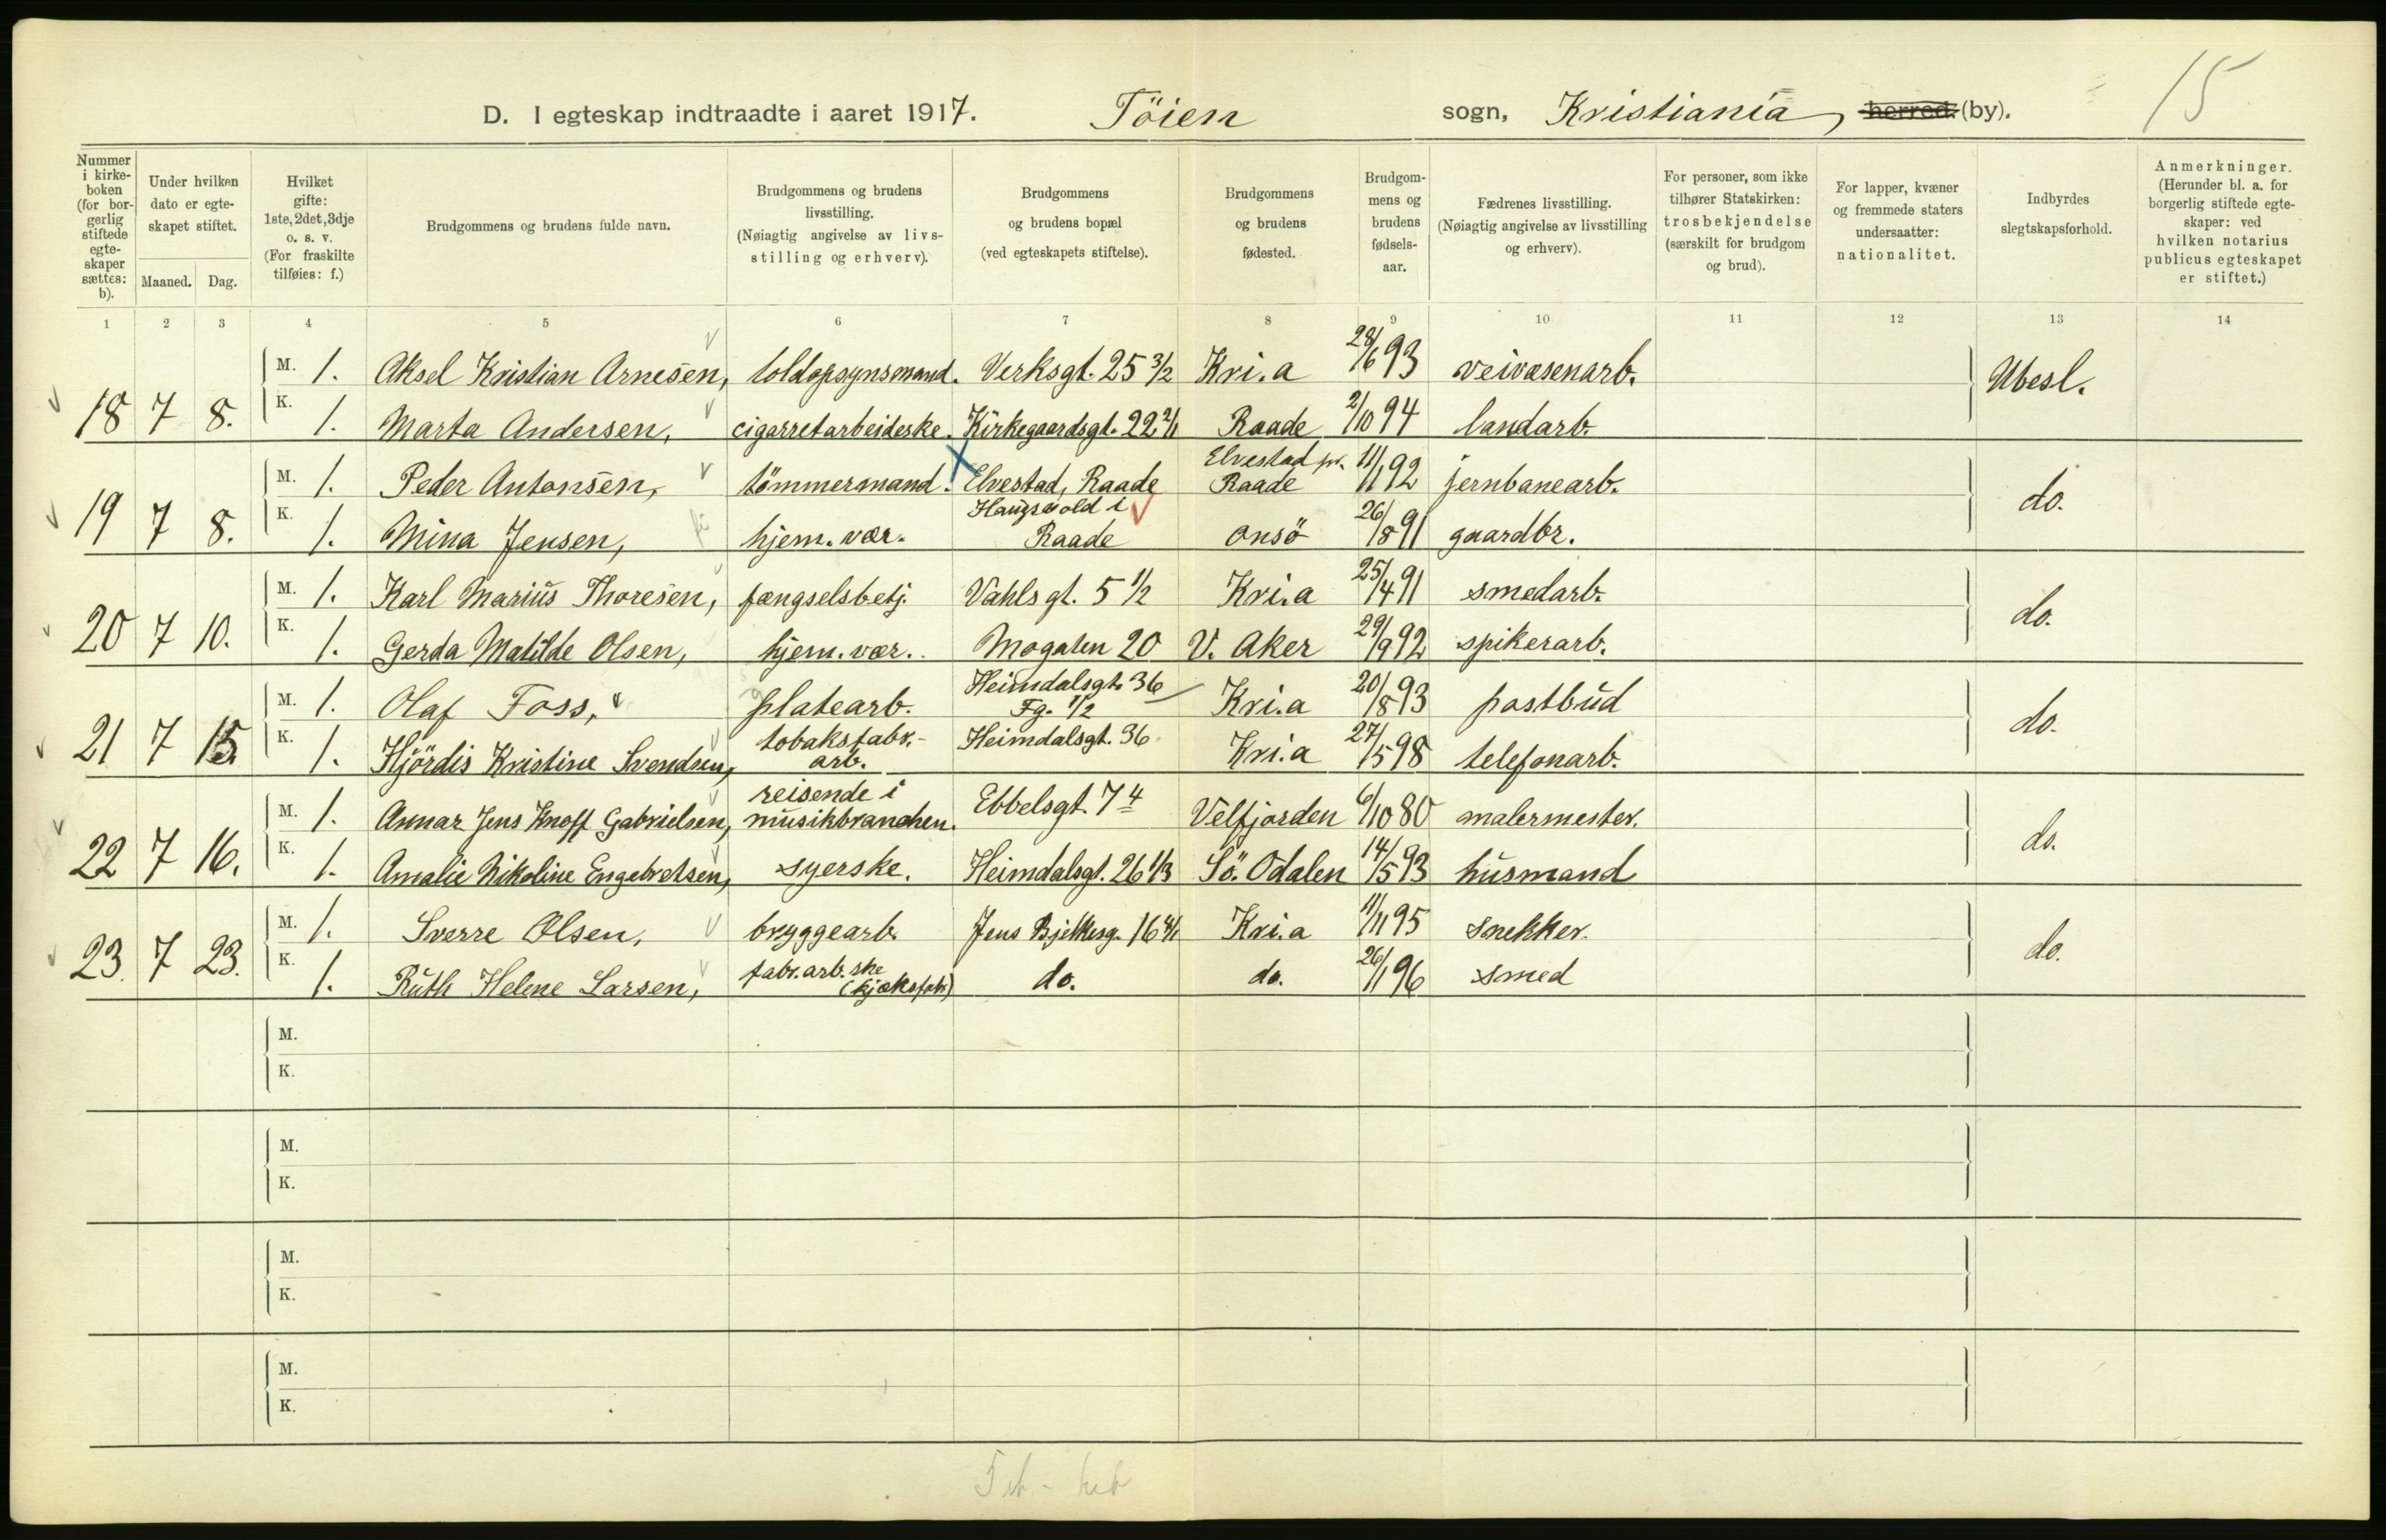 15
D. I egteskap indtraadte i aaret 1917. Töien sogn, Kristiania, herred (by).
Nummer i kirkeboken (for borgerlig stiftede egteskaper sættes: b).
Under hvilken dato er egteskapet stiftet.
Maaned. Dag.
Hvilket gifte: 1ste, 2det, 3dje o. s. v. (For fraskilte tilføies: f.)
Brudgommens og brudens fulde navn.
Brudgommens og brudens livsstilling. (Nøiagtig angivelse av livsstilling og erhverv).
Brudgommens og brudens bopæl (ved egteskapets stiftelse).
Brudgommens og brudens fødested.
Brudgommens og brudens fødselsaar.
Fædrenes livsstilling. (Nøiagtig angivelse av livsstilling og erhverv).
For personer, som ikke tilhører Statskirken: trosbekjendelse (særskilt for brudgom og brud).
For lapper, kvæner og fremmede staters undersaatter: nationalitet.
Indbyrdes slegtskapsforhold.
Anmerkninger. (Herunder bl. a. for borgerlig stiftede egteskaper: ved hvilken notarius publicus egteskapet er stiftet.)
1 2 3 4 5 6 7 8 9 10 11 12 13 14
M. 1. Aksel Kristian Arnesen, toldopsynsmand. Verksgt. 25 3/2 Kri.a 28/6 93 veivæsenarb. Ubesl.
18 7 8. K. 1. Marta Andersen, cigarretarbeideske. Kirkegaardsgt. 22 2/1 Raade 2/10 94 landarb.
M. 1. Peder Antonsen, tömmermand. Elvestad, Raade Elvestad pr. Raade 11/1 92 jernbanearb. do.
19 7 8. K. 1. Mina Jensen, hjem. vær. Haugsvold i Raade Onsö 26/8 91 gaardbr.
M. 1. Karl Marius Thoresen, fængselsbetj. Vahls gt. 5 1/2 Kri.a 25/4 91 smedarb. do.
20 7 10. K. 1. Gerda Matilde Olsen, hjem. vær. Mogaten 20 V. Aker 29/9 92 spikerarb.
M. 1. Olaf Foss, platearb. Heimdalsgt. 36 Fg. 1/2 Kri.a 20/8 93 postbud do.
21 7 15. K. 1. Hjördis Kristine Svendsen, tobaksfabr.-arb. Heimdalsgt. 36 Kri.a 27/5 98 telefonarb.
M. 1. Annar Jens Knoff Gabrielsen, reisende i musikbranchen. Ebbelsgt. 7 4 Velfjorden 6/10 80 malermester. do.
22 7 16. K. 1. Amalie Nikoline Engebretsen, syerske. Heimdalsgt. 26 1/3 Sö. Odalen 14/5 93 husmand
M. 1. Sverre Olsen, bryggearb. Jens Bjelkesg. 16 4/1 Kri.a 11/11 95 snekker. do.
23. 7 23. K. 1. Ruth Helene Larsen, fabr.arb.ske (kjæksfabr.) do. do. 26/1 96 smed
M.
K.
M.
K.
M.
K.
M.
K.